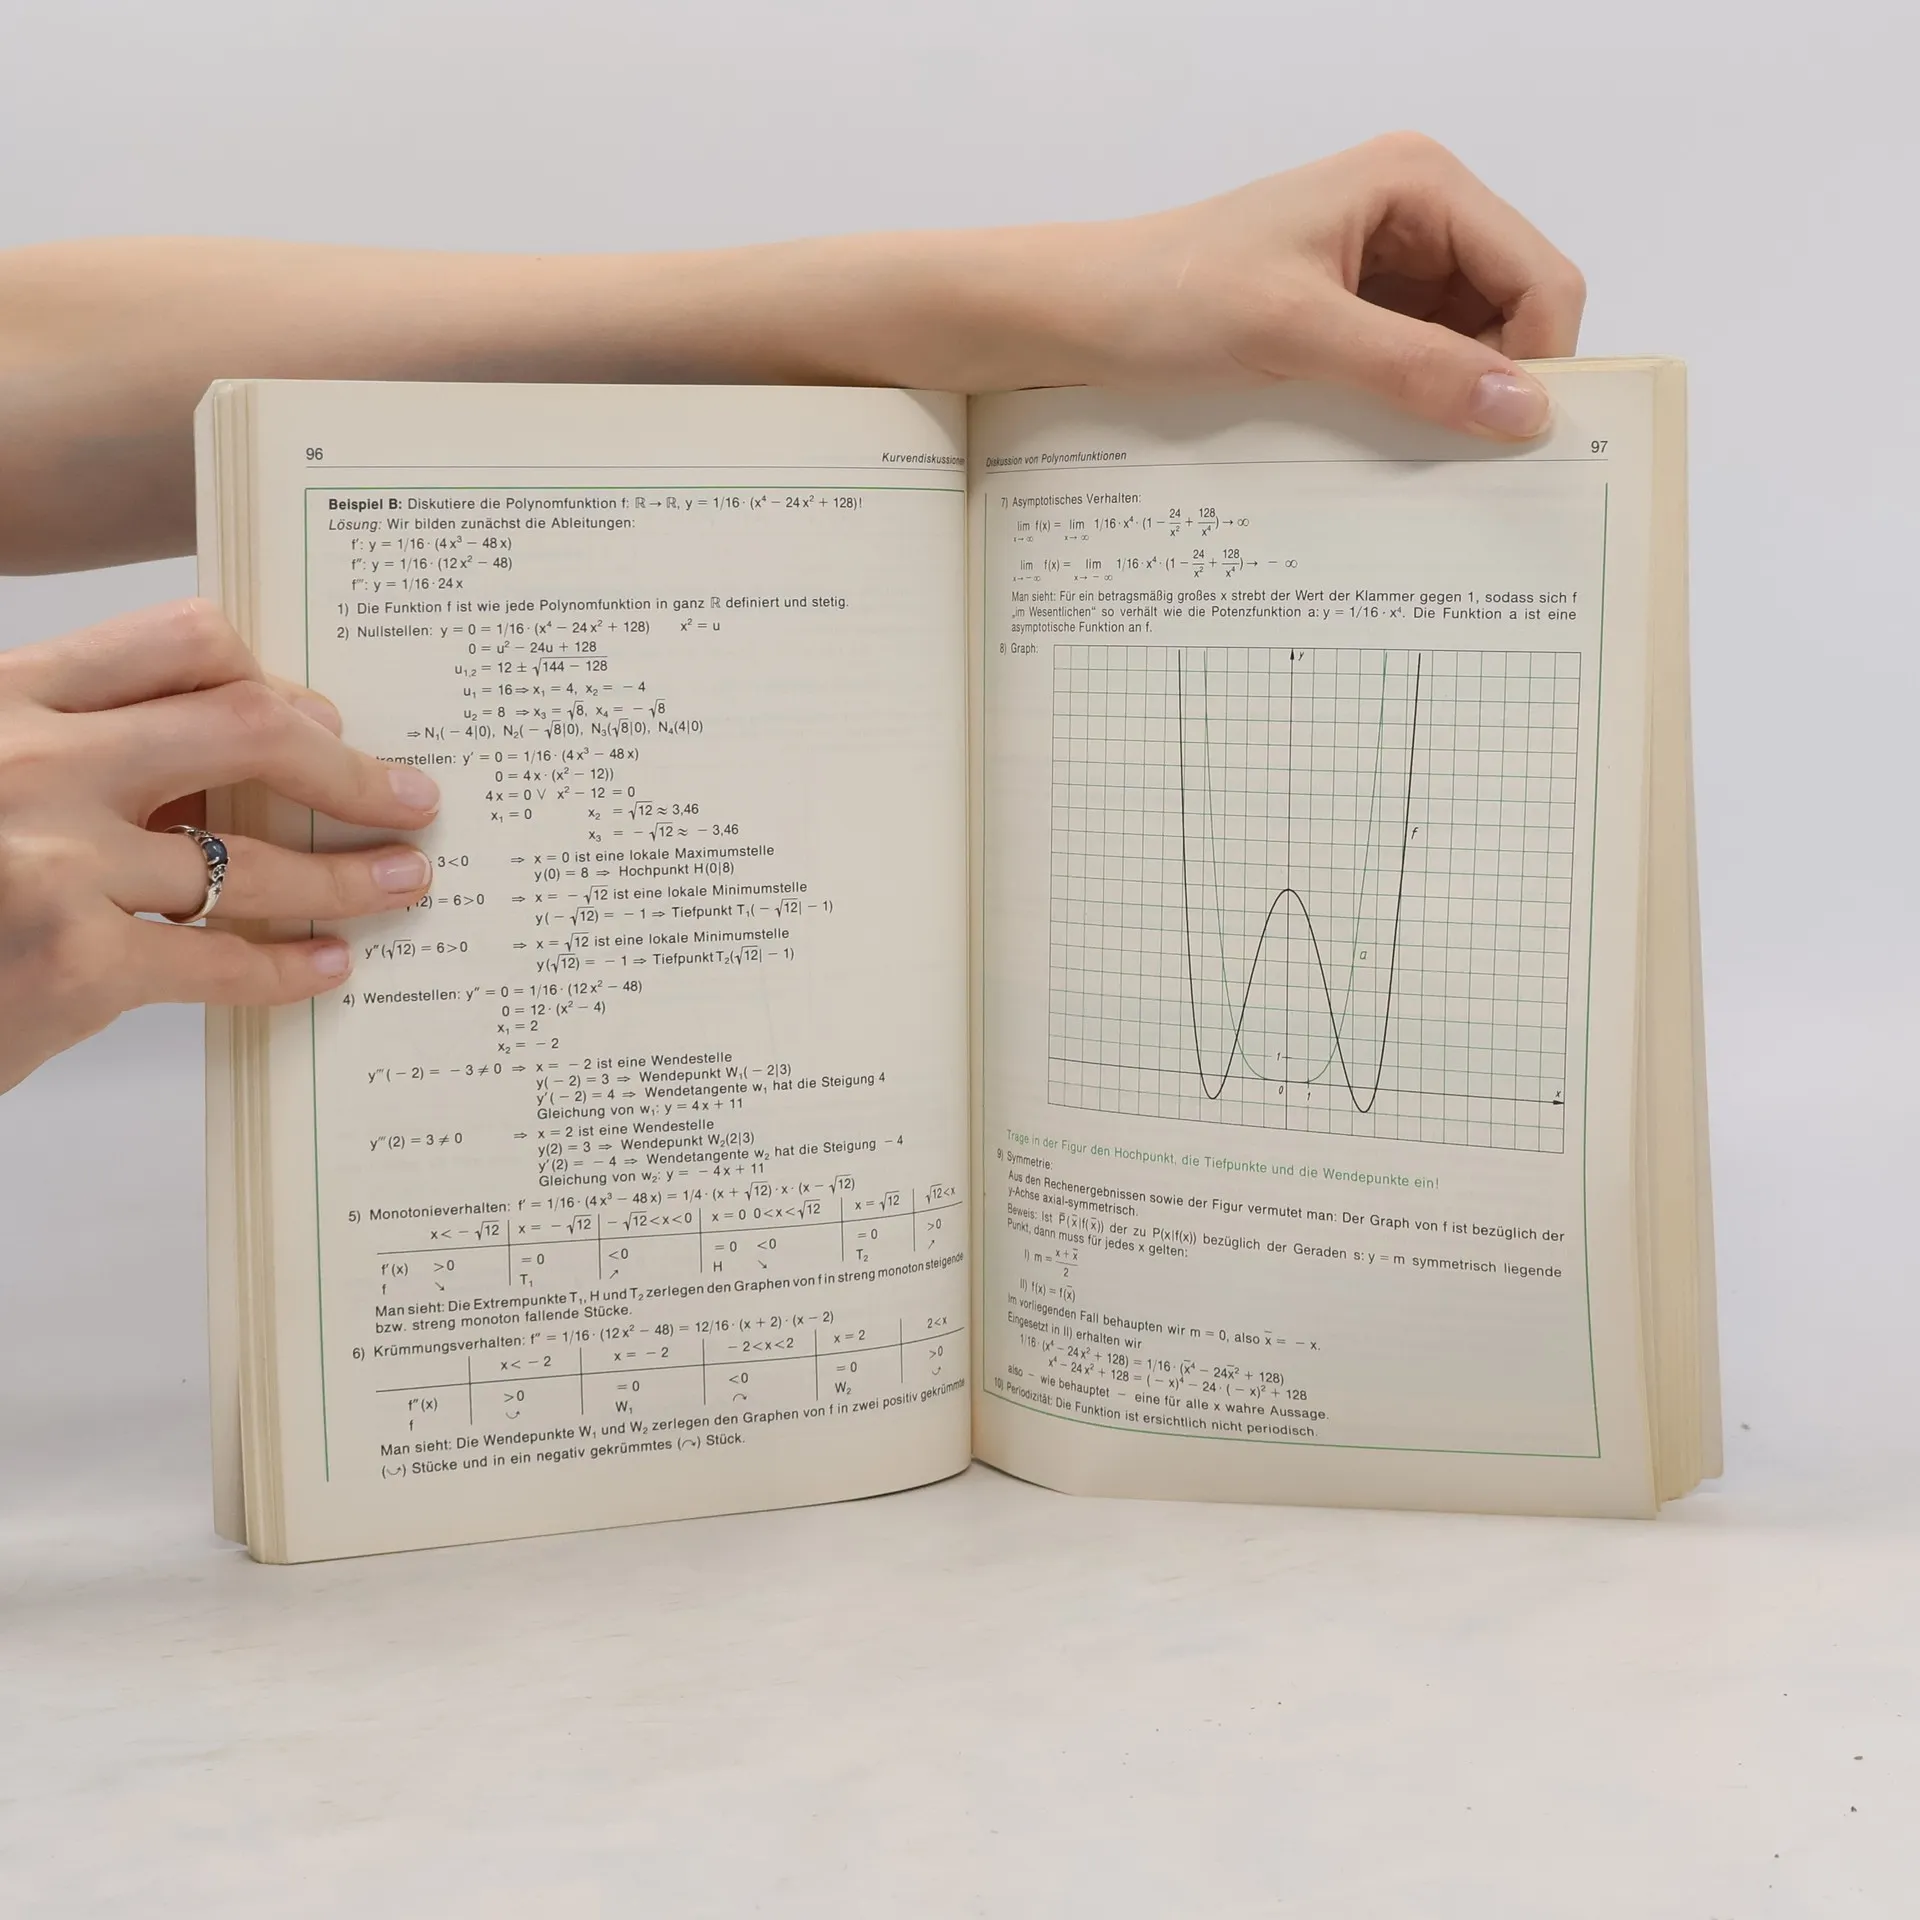 96
Kurvendiskussionen
Beispiel B: Diskutiere die Polynomfunktion f: ℝ → ℝ, y = 1/16 · (x⁴ − 24x² + 128)!
Lösung: Wir bilden zunächst die Ableitungen:
f′: y = 1/16 · (4x³ − 48x)
f″: y = 1/16 · (12x² − 48)
f‴: y = 1/16 · 24x
1) Die Funktion f ist wie jede Polynomfunktion in ganz ℝ definiert und stetig.
2) Nullstellen: y = 0 = 1/16 · (x⁴ − 24x² + 128) x² = u
0 = u² − 24u + 128
u₁,₂ = 12 ± √144 − 128
u₁ = 16 ⇒ x₁ = 4, x₂ = − 4
u₂ = 8 ⇒ x₃ = √8, x₄ = − √8
⇒ N₁(− 4|0), N₂(− √8|0), N₃(√8|0), N₄(4|0)
y′ = 0 = 1/16 · (4x³ − 48x)
0 = 4x · (x² − 12))
4x = 0 ∨ x² − 12 = 0
x₁ = 0 x₂ = √12 ≈ 3,46
x₃ = − √12 ≈ − 3,46
3<0 ⇒ x = 0 ist eine lokale Maximumstelle
y(0) = 8 ⇒ Hochpunkt H(0|8)
12) = 6>0 ⇒ x = − √12 ist eine lokale Minimumstelle
y(− √12) = − 1 ⇒ Tiefpunkt T₁(− √12| − 1)
y″(√12) = 6>0 ⇒ x = √12 ist eine lokale Minimumstelle
y(√12) = − 1 ⇒ Tiefpunkt T₂(√12| − 1)
4) Wendestellen: y″ = 0 = 1/16 · (12x² − 48)
0 = 12 · (x² − 4)
x₁ = 2
x₂ = − 2
y‴(− 2) = − 3 ≠ 0 ⇒ x = − 2 ist eine Wendestelle
y(− 2) = 3 ⇒ Wendepunkt W₁(− 2|3)
y′(− 2) = 4 ⇒ Wendetangente w₁ hat die Steigung 4
Gleichung von w₁: y = 4x + 11
y‴(2) = 3 ≠ 0 ⇒ x = 2 ist eine Wendestelle
y(2) = 3 ⇒ Wendepunkt W₂(2|3)
y′(2) = − 4 ⇒ Wendetangente w₂ hat die Steigung − 4
Gleichung von w₂: y = − 4x + 11
5) Monotonieverhalten: f′ = 1/16 · (4x³ − 48x) = 1/4 · (x + √12) · x · (x − √12)
x< − √12 | x = − √12 | − √12<x<0 | x = 0 0<x<√12 | x = √12 | √12<x
f′(x) >0 =0 <0 =0 <0 =0 >0
f ↘ T₁ ↗ H ↘ T₂ ↗
Man sieht: Die Extrempunkte T₁, H und T₂ zerlegen den Graphen von f in streng monoton steigende
bzw. streng monoton fallende Stücke.
6) Krümmungsverhalten: f″ = 1/16 · (12x² − 48) = 12/16 · (x + 2) · (x − 2)
x< − 2 x = − 2 − 2<x<2 x = 2 2<x
f″(x) >0 =0 <0 =0 >0
f ⤻ W₁ ↷ W₂ ⤻
Man sieht: Die Wendepunkte W₁ und W₂ zerlegen den Graphen von f in zwei positiv gekrümmte
(⤻) Stücke und in ein negativ gekrümmtes (↷) Stück.
Diskussion von Polynomfunktionen
97
7) Asymptotisches Verhalten:
lim x→∞ f(x) = lim x→∞ 1/16 · x⁴ · (1 − 24/x² + 128/x⁴) → ∞
lim x→−∞ f(x) = lim x→−∞ 1/16 · x⁴ · (1 − 24/x² + 128/x⁴) → − ∞
Man sieht: Für ein betragsmäßig großes x strebt der Wert der Klammer gegen 1, sodass sich f
„im Wesentlichen“ so verhält wie die Potenzfunktion a: y = 1/16 · x⁴. Die Funktion a ist eine
asymptotische Funktion an f.
8) Graph:
y
f
a
1
0
1
x
Trage in der Figur den Hochpunkt, die Tiefpunkte und die Wendepunkte ein!
9) Symmetrie:
Aus den Rechenergebnissen sowie der Figur vermutet man: Der Graph von f ist bezüglich der
y-Achse axial-symmetrisch.
Beweis: Ist P̄(x̄|f(x̄)) der zu P(x|f(x)) bezüglich der Geraden s: y = m symmetrisch liegende
Punkt, dann muss für jedes x gelten:
I) m = (x + x̄)/2
II) f(x) = f(x̄)
Im vorliegenden Fall behaupten wir m = 0, also x̄ = − x.
Eingesetzt in II) erhalten wir
1/16 · (x⁴ − 24x² + 128) = 1/16 · (x̄⁴ − 24x̄² + 128)
x⁴ − 24x² + 128 = (− x)⁴ − 24 · (− x)² + 128
also − wie behauptet − eine für alle x wahre Aussage.
10) Periodizität: Die Funktion ist ersichtlich nicht periodisch.